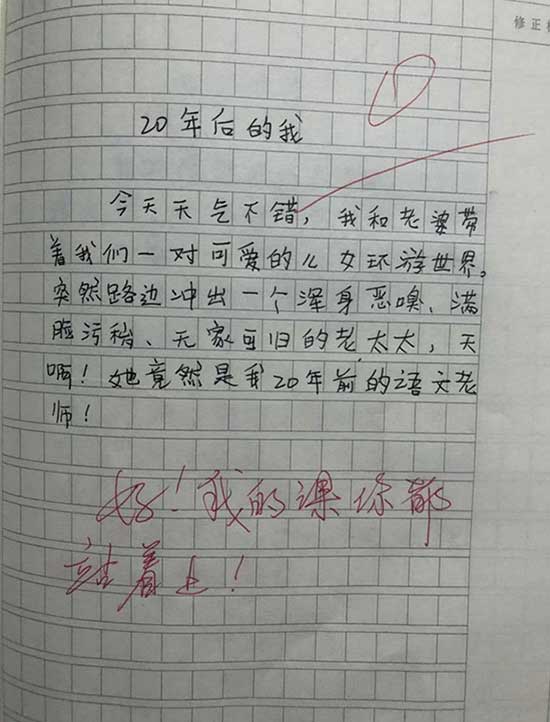 修正
20年后的我
今天天气不错，我和老婆带
着我们一对可爱的儿女环游世界。
突然路边冲出一个浑身恶嗅、满
脸污秽、无家可归的老太太，天
啊！她竟然是我20年前的语文老
师！
好！我的课你都
站着上！